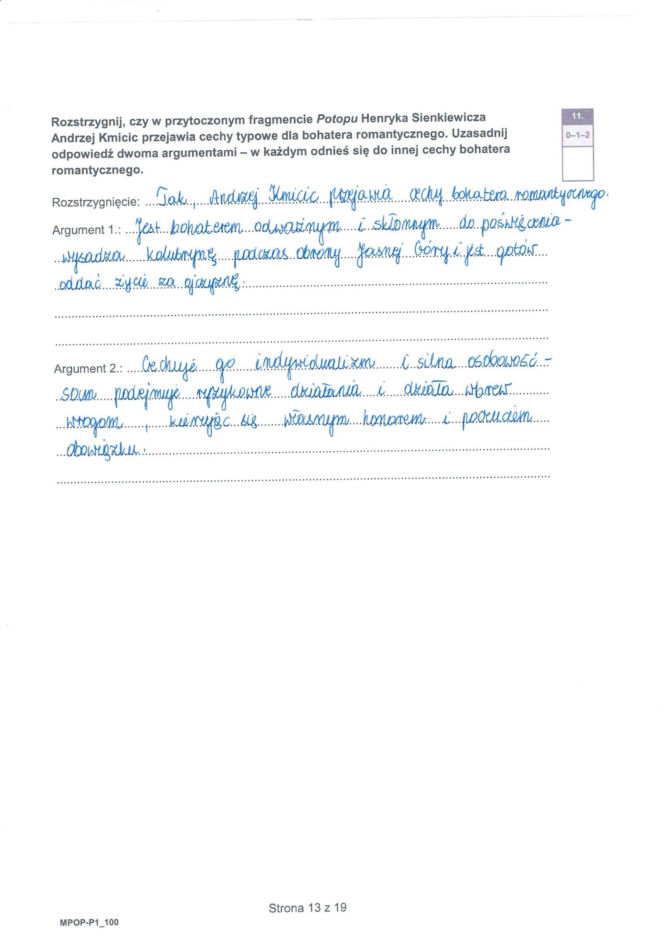 Rozstrzygnij, czy w przytoczonym fragmencie Potopu Henryka Sienkiewicza
Andrzej Kmicic przejawia cechy typowe dla bohatera romantycznego. Uzasadnij
odpowiedź dwoma argumentami – w każdym odnieś się do innej cechy bohatera
romantycznego.
11.
0–1–2
Rozstrzygnięcie: Tak, Andrzej Kmicic przejawia cechy bohatera romantycznego.
Argument 1.: Jest bohaterem odważnym i skłonnym do poświęcenia -
wysadza kolubrynę podczas obrony Jasnej Góry i jest gotów
oddać życie za ojczyznę.
Argument 2.: Cechuje go indywidualizm i silna osobowość -
sam podejmuje ryzykowne działania i działa wbrew
wrogom, kierując się własnym honorem i poczuciem
obowiązku.
Strona 13 z 19
MPOP-P1_100